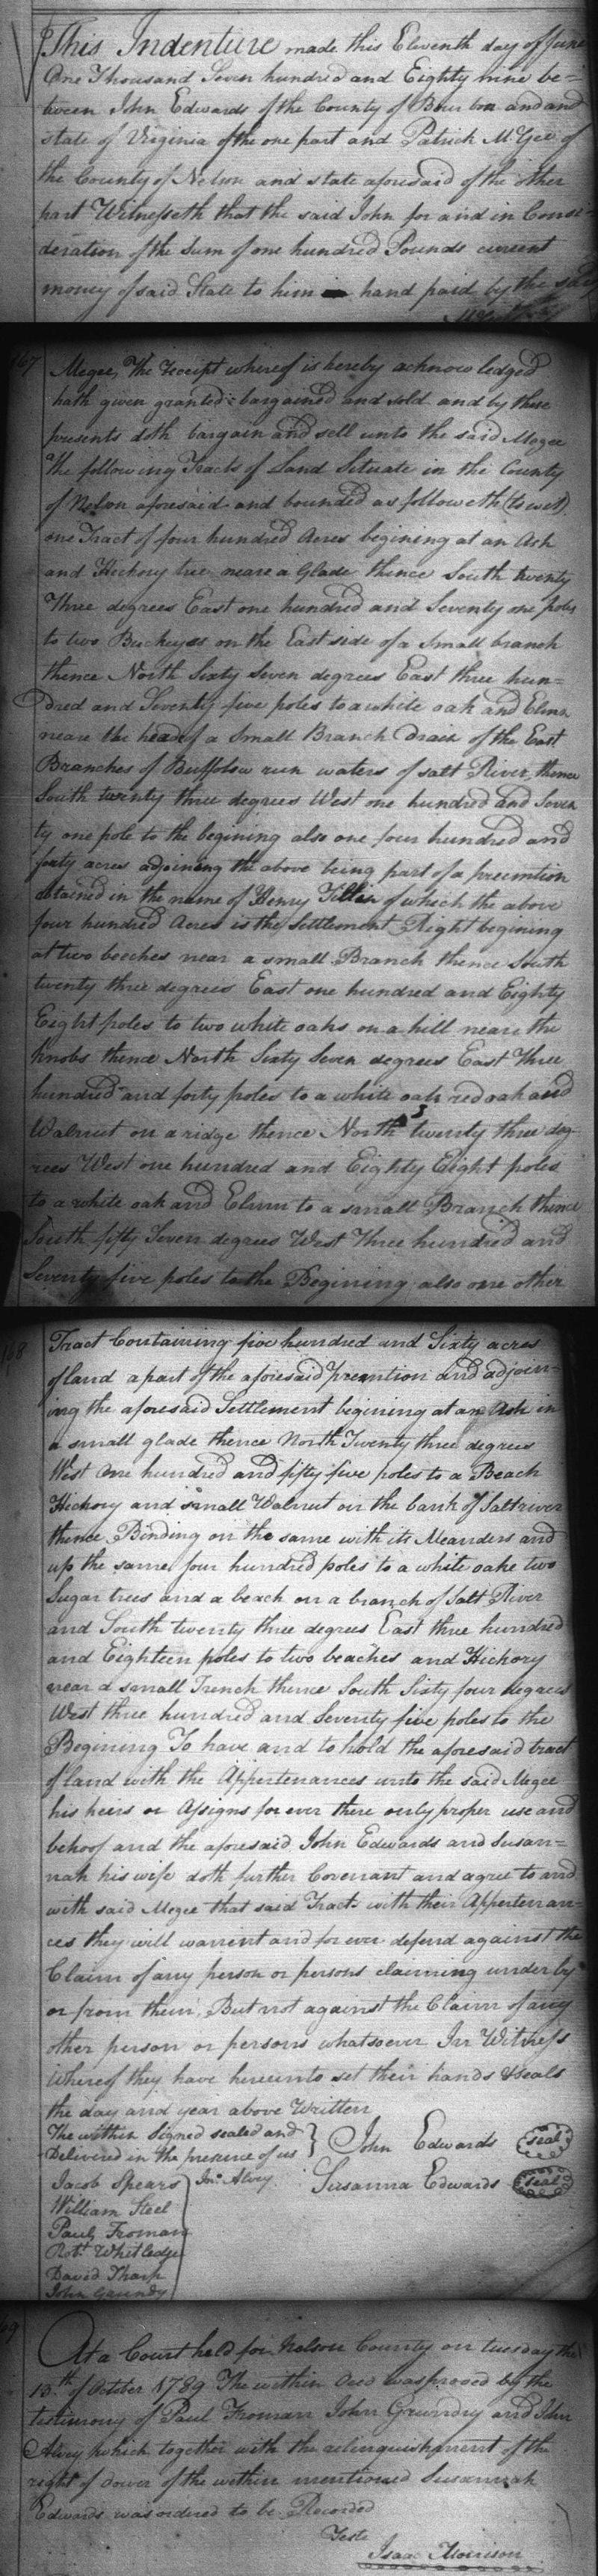 This Indenture made this Eleventh day of June
One Thousand Seven hundred and Eighty nine be=
tween John Edwards of the County of Bour bon and and
state of Virginia of the one part and Patrick McGee of
the County of Nelson and state aforesaid of the other
part Witnesseth that the said John for and in Consi=
deration of the Sum of one hundred Pounds current
money of said State to him hand paid by the said
167
Megee, The receipt whereof is hereby acknowledged
hath given granted bargained and sold and by these
presents doth bargain and sell unto the said Megee
the following Tracts of Land Situate in the County
of Nelson aforesaid and bounded as followeth (to wit)
one Tract of four hundred Acres begining at an Ash
and Hickory tree neare a Glade thence South twenty
Three degrees East one hundred and Seventy one poles
to two Buckeyes on the East side of a small branch
thence North Sixty Seven degrees East three hun=
dred and Seventy five poles to a white oak and Elm
neare the head of a Small Branch drain of the East
Branches of Buffolow run waters of salt River, thence
South twenty three degrees West one hundred and Seven
ty one pole to the begining also one four hundred and
forty acres adjoining the above being part of a preemtion
obtained in the name of Henry of which the above
four hundred Acres is the Settlement Right begining
at two beeches near a small Branch thence South
twenty three degrees East one hundred and Eighty
Eight poles to two white oaks on a hill neare the
knobs thence North Sixty Seven degrees East Three
hundred and forty poles to a white oak red oak and
Walnut on a ridge thence North twenty three deg-
rees West one hundred and Eighty Eight poles
to a white oak and Elum to a small Branch thence
South fifty Seven degrees West Three hundred and
Seventy five poles to the Begining also one other
168
Tract Containing five hundred and Sixty acres
of land a part of the aforesaid preemtion and adjoin-
ing the aforesaid Settlement begining at an Ash in
a small glade thence North Twenty three degrees
West one hundred and fifty five poles to a Beach
Hickory and small Walnut on the bank of Saltriver
thence Binding on the same with its Meanders and
up the same four hundred poles to a white oake two
Sugar trees and a beach on a branch of Salt River
and South twenty three degrees East three hundred
and Eighteen poles to two beaches and Hickory
near a small Trench thence South Sixty four degrees
West three hundred and Seventy five poles to the
Begining To have and to hold the aforesaid tract
of land with the Appertenances unto the said Megee
his heirs or Assigns for ever there only proper use and
behoof and the aforesaid John Edwards and Susan=
nah his wife doth further Covenant and agree to and
with said Megee that said Tracts with their Appertenan=
ces they will warrent and for ever defend against the
Claim of any person or persons claiming under by
or from them, But not against the Claim of any
other person or persons whatsoever In Witness
Whereof they have hereunto set their hands & seals
the day and year above Written
The within Signed sealed and } John Edwards seal
Delivered in the presence of us
Jacob Spears Jno. Alvey Susanna Edwards seal
William Steel
Paul Froman
Robt. Whitledge
David Tharp
John Grundy
At a Court held for Nelson County on tuesday the
13th. of October 1789 The within Deed was proved by the
testimony of Paul Froman John Grundry and John
Alvey which together with the relinquishment of the
right of dower of the within mentioned Susannah
Edwards was ordered to be Recorded
Teste
Isaac Morrison